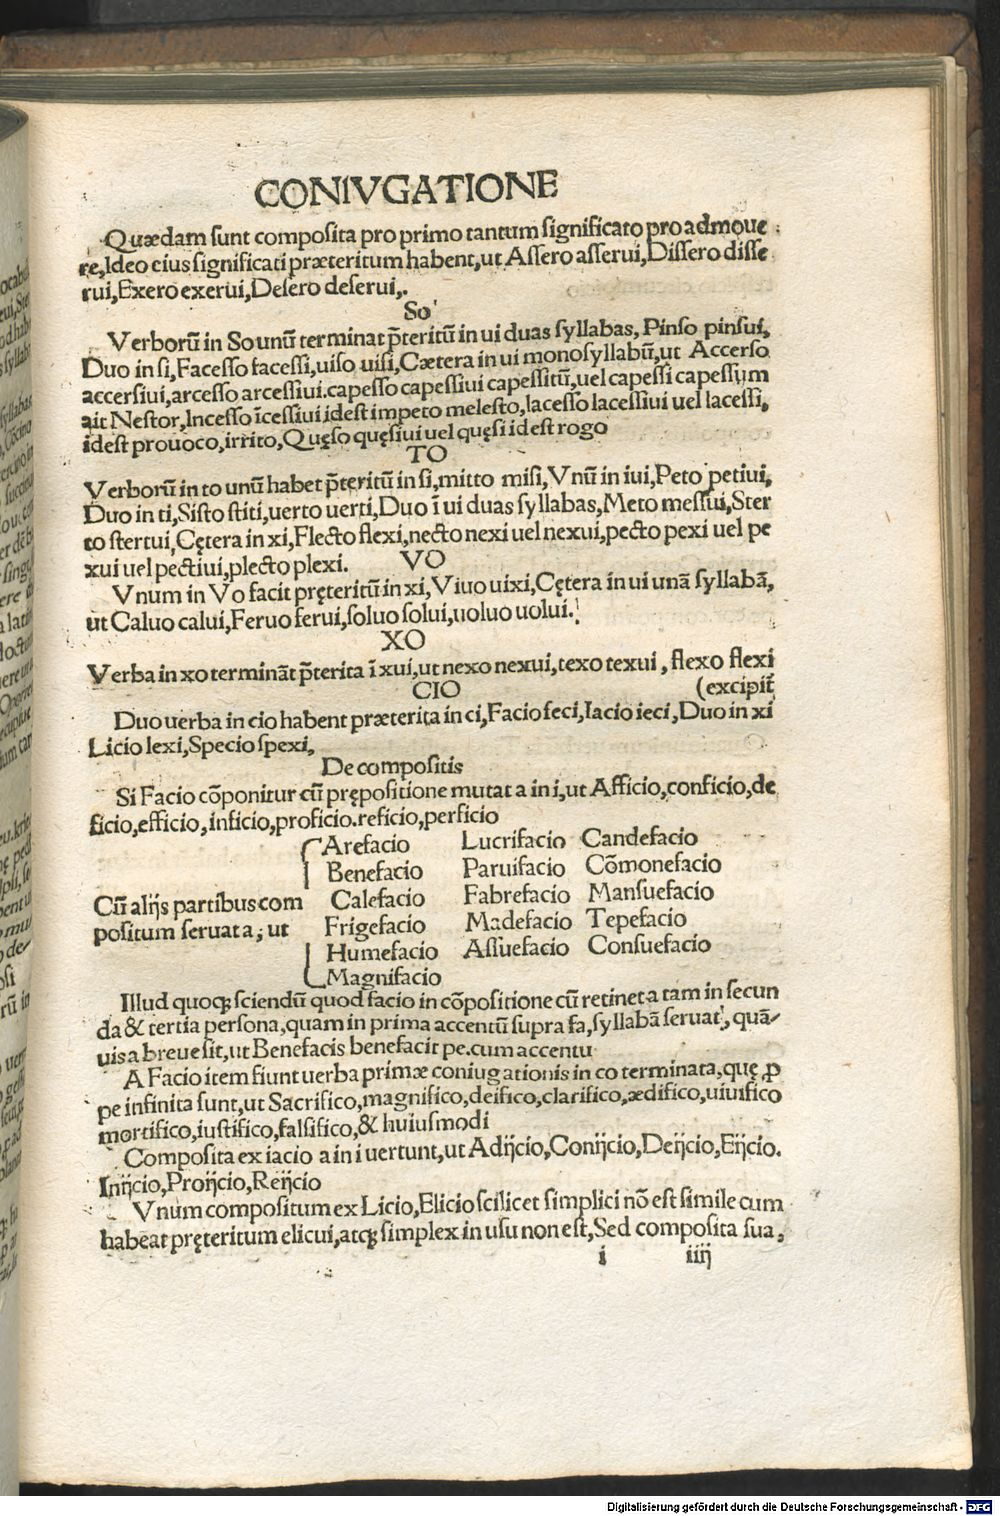 CONIVGATIONE
Quædam sunt composita pro primo tantum significato pro admoue
re,Ideo eius significati præteritum habent,ut Assero asserui,Dissero disse
rui,Exero exerui,Desero deserui,.
So
Verborū in So unū terminat p̄teritū in ui duas syllabas, Pinso pinsui,
Duo in si, Facesso facessi,uiso uisi,Cætera in ui monosyllabū,ut Accerso
accersiui,arcesso arcessiui.capesso capessiui capessitū,uel capessi capessum
ait Nestor,Incesso īcessiui idest impeto melesto,lacesso lacessiui uel lacessi,
idest prouoco,irrito,Quęso quęsiui uel quęsi idest rogo
TO
Verborū in to unū habet p̄teritū in si,mitto misi,Vnū in iui,Peto petiui,
Duo in ti,Sisto stiti,uerto uerti,Duo ī ui duas syllabas,Meto messui,Ster
to stertui,Cętera in xi,Flecto flexi,necto nexi uel nexui,pecto pexi uel pe
xui uel pectiui,plecto plexi.
VO
Vnum in Vo facit pręteritū in xi,Viuo uixi,Cętera in ui unā syllabā,
ut Caluo calui,Feruo ferui,soluo solui,uoluo uolui.
XO
Verba in xo termināt p̄terita ī xui,ut nexo nexui,texo texui, flexo flexi
(excipit̄
CIO
Duo uerba in cio habent præterita in ci,Facio feci,Iacio ieci,Duo in xi
Licio lexi,Specio spexi,
De compositis
Si Facio cōponitur cū prępositione mutat a in i,ut Afficio,conficio,de
ficio,efficio,inficio,proficio.reficio,perficio
Arefacio Lucrifacio Candefacio
Benefacio Paruifacio Cōmonefacio
Cū alijs partibus com Calefacio Fabrefacio Mansuefacio
positum seruat a, ut Frigefacio Madefacio Tepefacio
Humefacio Assuefacio Consuefacio
Magnifacio
Illud quoqꝫ sciendū quod facio in cōpositione cū retinet a tam in secun
da & tertia persona,quam in prima accentū supra fa,syllabā seruat, quā-
uis a breue sit,ut Benefacis benefacit pe.cum accentu
A Facio item fiunt uerba primæ coniugationis in co terminata,quę ꝓ
pe infinita sunt,ut Sacrifico,magnifico,deifico,clarifico,ædifico,uiuifico
mortifico,iustifico,falsifico,& huiusmodi
Composita ex iacio a in i uertunt,ut Adijcio,Conijcio,Deijcio,Eijcio.
Inijcio,Proijcio,Reijcio
Vnum compositum ex Licio,Elicio scilicet simplici nō est simile cum
habeat pręteritum elicui,atqꝫ simplex in usu non est,Sed composita sua,
i iiij
Digitalisierung gefördert durch die Deutsche Forschungsgemeinschaft - DFG